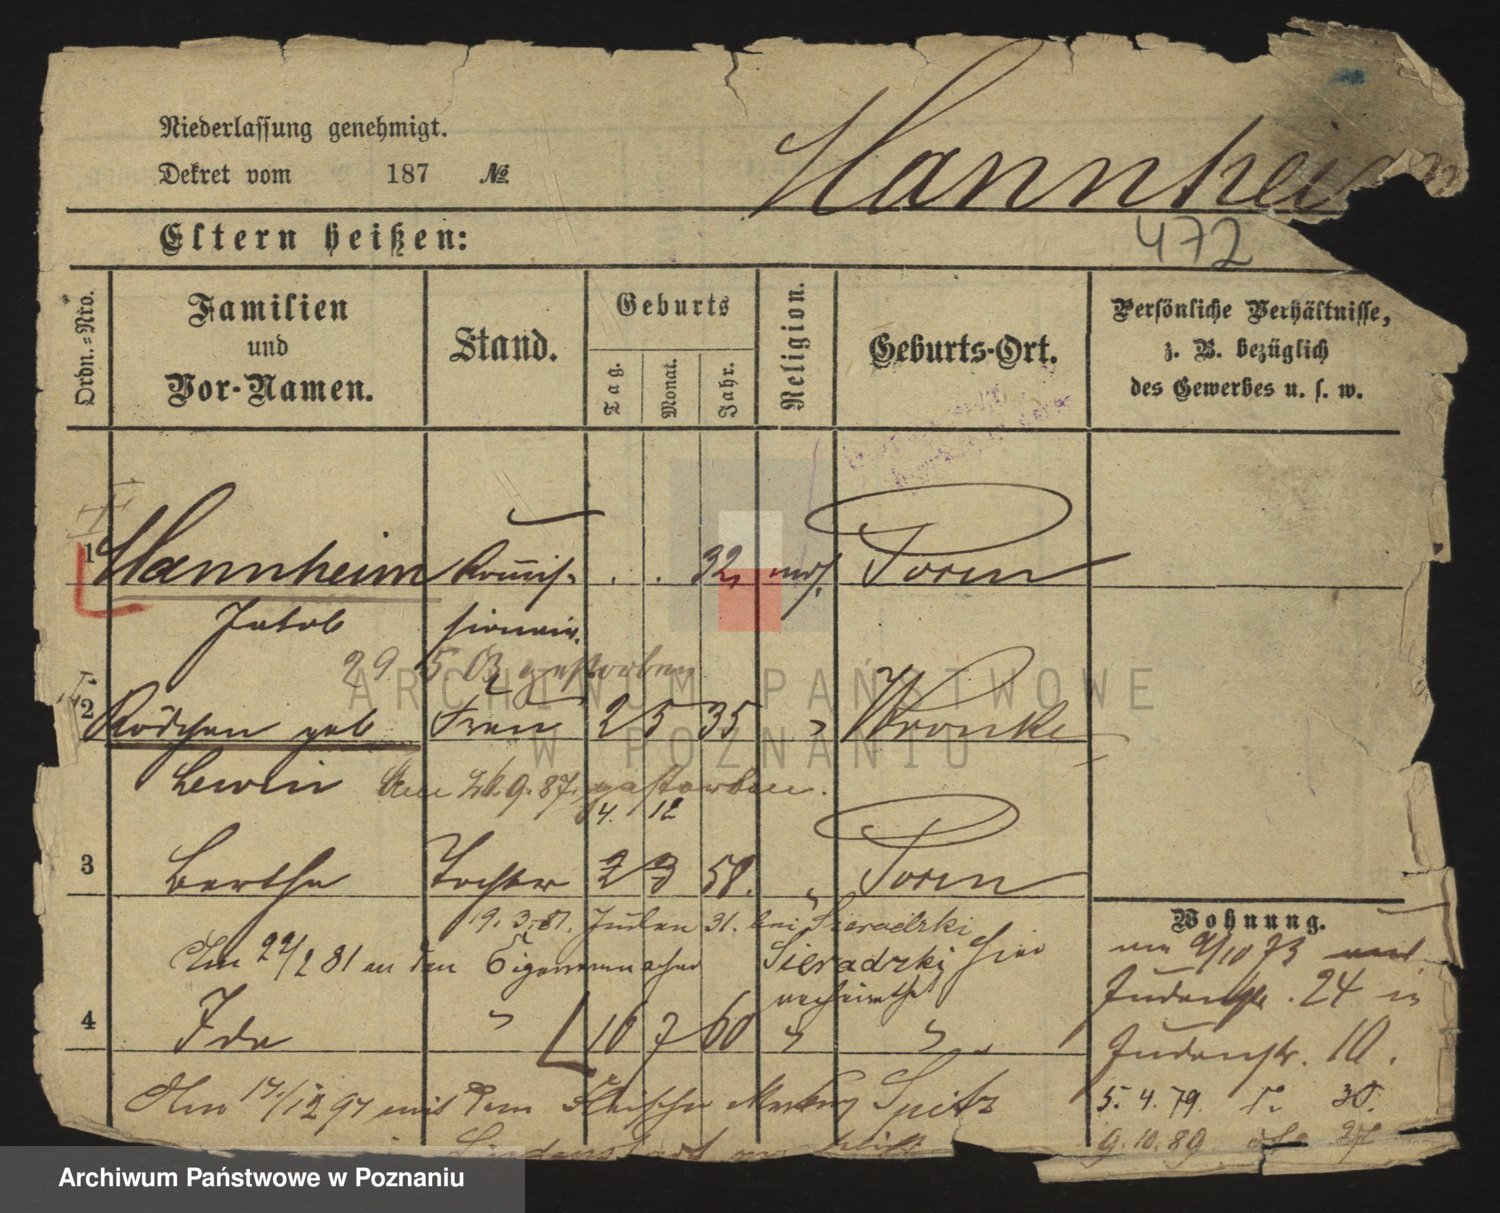 Niederlassung genehmigt.
Dekret vom 187 №
Mannheim
472
Eltern heißen:
Ordn.-Nro.
Familien und Vor-Namen.
Stand.
Geburts
Tag.
Monat.
Jahr.
Religion.
Geburts-Ort.
Persönliche Verhältnisse, z. B. bezüglich des Gewerbes u. s. w.
1 Mannheim Kommis- . . 32 mos. Posen
Jakob sionair.
29 5 03 gestorben
2 Röschen geb Frau 2 5 35 " Wronke
Lewin Am 26.9.87. gestorben.
14. 12
3 Bertha Tochter 2 3 58. " Posen
Wohnung.
19.3.81. Juden 31. bei Sieradzki
Am 22/2 81 an den Cigarrenmacher Sieradzki hier
verheirathet
am 9/10 73
Judenstr. 24 in
4 Ida " 16 7 60 " "
Judenstr. 10.
Am 17/12 97 mit dem Fleischer Markus Spitz
5. 4. 79. 30.
9. 10. 89. 27
ARCHIWUM PAŃSTWOWE
W POZNANIU
Archiwum Państwowe w Poznaniu